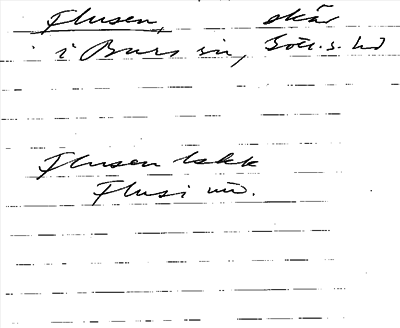 Flusen, skär
i Burs sn, Gotl. s. hd
Flusen lakk
Flusi